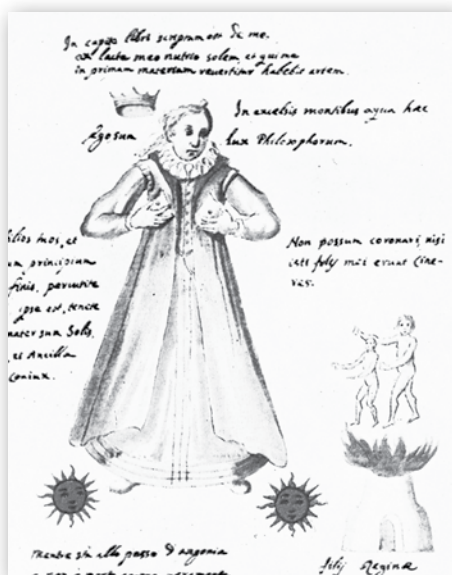 In capite libri scriptum est de me.
ex lacte meo nutrio solem, et qui me
in primam materiam revertitur habebit artem.
In excelsis montibus aqua hæc
Ego sum
lux Philosophorum.
filios meos, et
um principium
finis, percutite
ipse est, tenete
mater sum Solis,
et Ancilla
coniux.
Non possum coronari, nisi
isti filij mei erunt Cine-
res.
mentre sta nello passo d'angonia
filij Reginæ